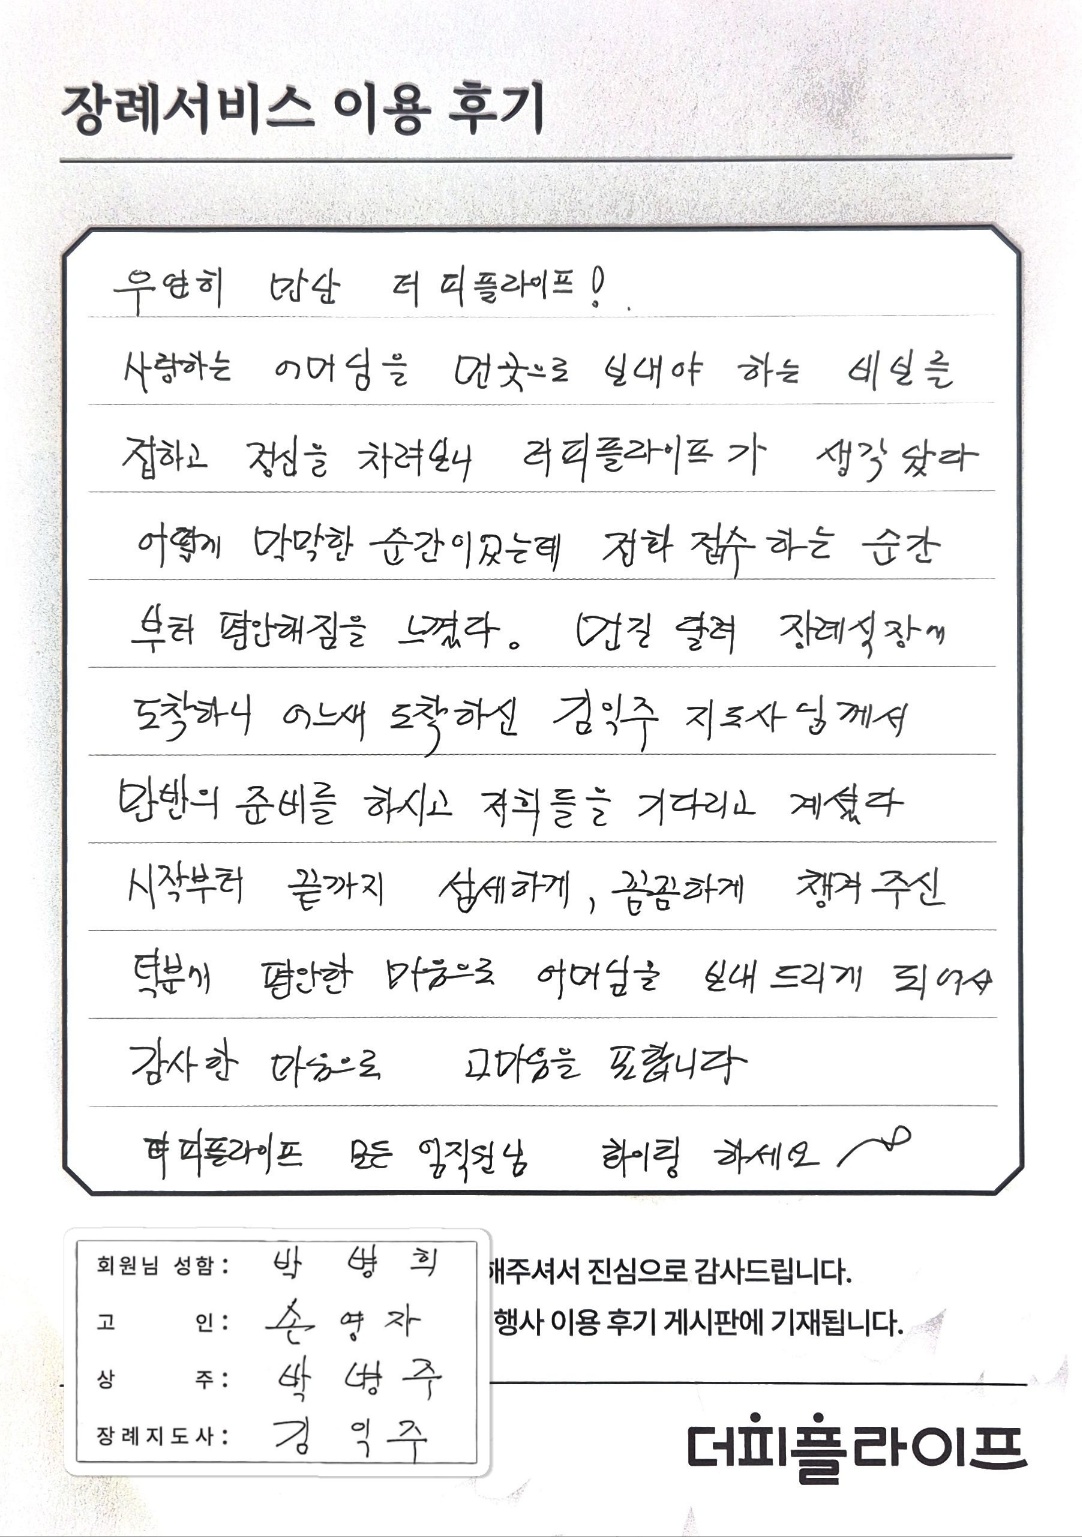 장례서비스 이용 후기
우연히 만난 더 피플라이프!
사랑하는 어머님을 먼곳으로 보내야 하는 비보를
접하고 정신을 차려보니 더피플라이프가 생각 났다
어떻게 막막한 순간이었는데 전화 접수 하는 순간
부터 편안해짐을 느꼈다. 먼길 달려 장례식장에
도착하니 어느새 도착하신 김익주 지도사님께서
만반의 준비를 하시고 저희들을 기다리고 계셨다
시작부터 끝까지 섬세하게, 꼼꼼하게 챙겨 주신
덕분에 편안한 마음으로 어머님을 보내 드리게 되어서
감사한 마음으로 고마움을 표합니다
더피플라이프 모든 임직원님 화이팅 하세요
회원님 성함: 박병희
고 인: 손영자
상 주: 박병주
장례지도사: 김익주
해주셔서 진심으로 감사드립니다.
행사 이용 후기 게시판에 기재됩니다.
더피플라이프